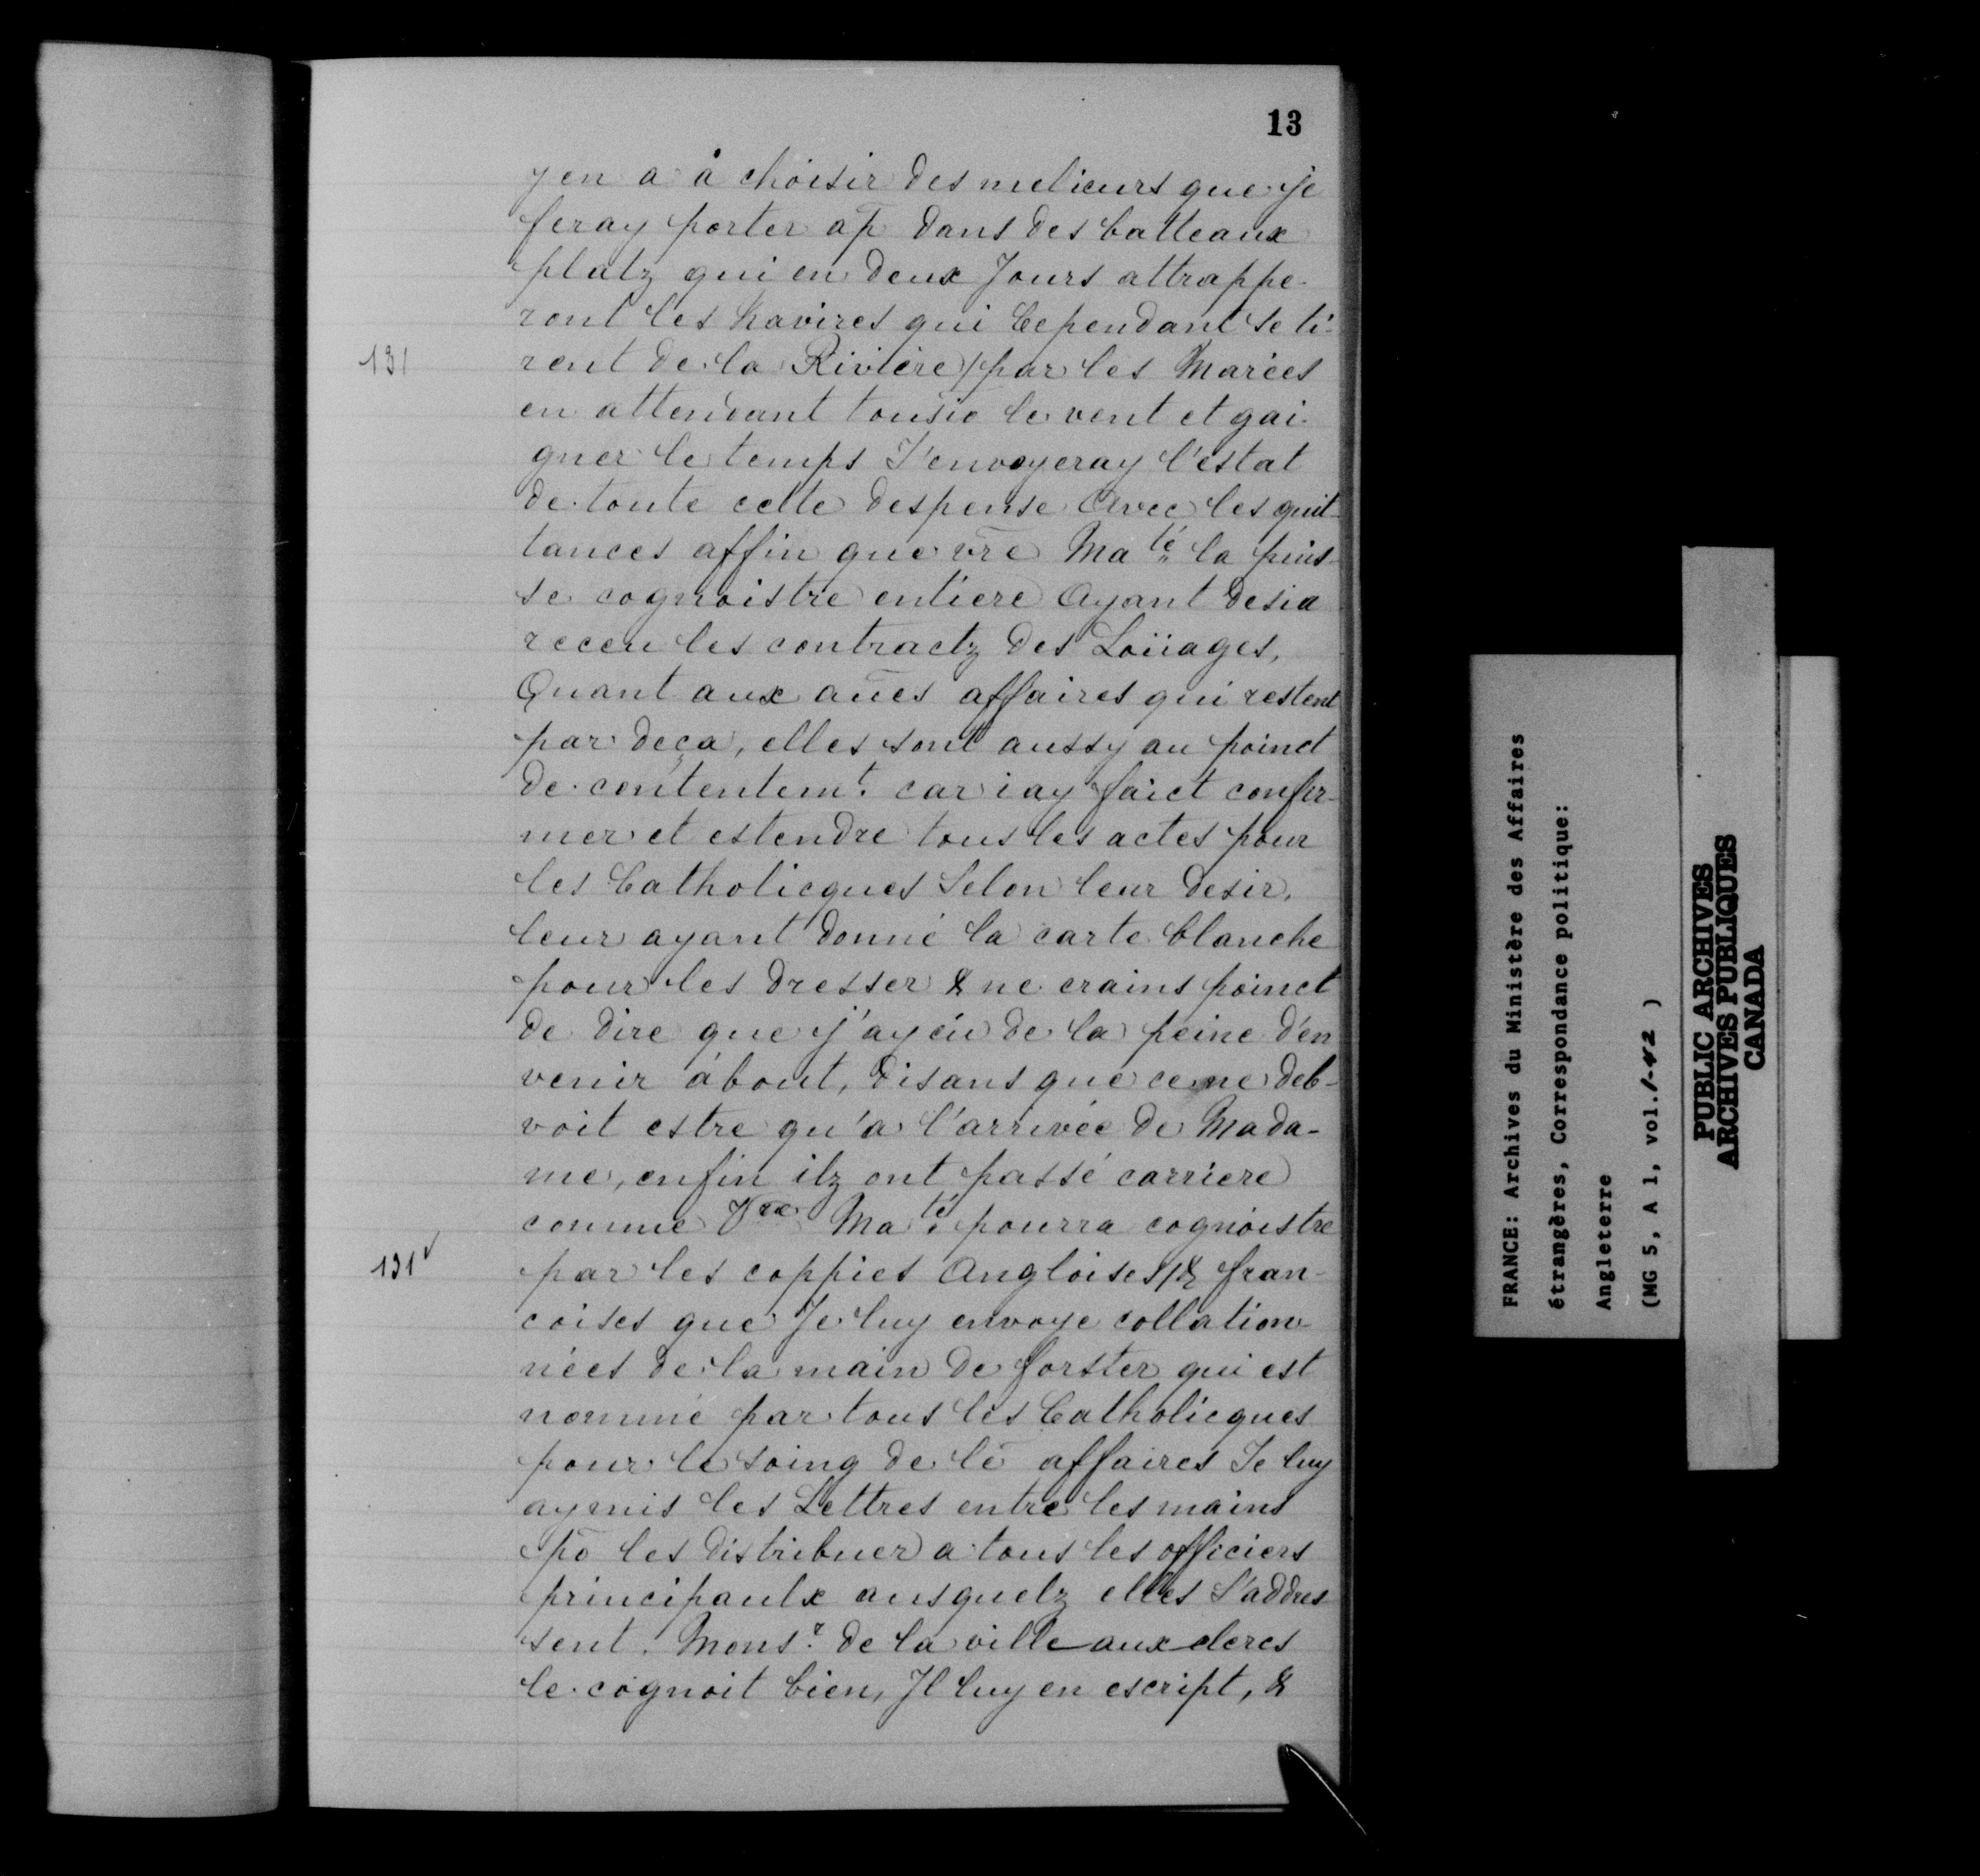 13
y en a à choisir des melieurs que je
feray porter ap̄ dans des batteaux
platz qui en deux Jours attrappe-
ront les navires qui cependant se ti-
131
rent de la Rivière/par les Marées
en attendant tousio le vent et gai-
gner le temps J'envoyeray l'estat
de toute cette despense avec les quit-
tances affin que vr̄e Ma.té la puis-
se cognoistre entiere Ayant desia
receu les contractz des Loüages,
Quant aux aūes affaires qui restent
par deça, elles sont aussy au poinct
de contentem.t car i ay faict confir-
mer et estendre tous les actes pour
les Catholicques selon leur desir,
leur ayant donné la carte blanche
pour les dresser & ne crains poinct
de dire que j'ay eü de la peine d'en
venir àbout, disans que ce ne deb-
voit estre qu'a l'arrivée de Mada-
me, enfin ilz ont passé carriere
comme Vre Ma.té pourra cognoistre
131v
par les coppies Angloises/& fran-
coises que Je luy envoye collation-
nées de la main de forster qui est
nommé par tous les Catholicques
pour le soing de lē affaires Je luy
ay mis les Lettres entre les mains
pō les distribuer a tous les officiers
principaulx ausquelz elles s'addres-
sent. Mons.r de la ville aux clercs
le cognoit bien, Il luy en escript, &
FRANCE: Archives du Ministère des Affaires
étrangères, Correspondance politique:
Angleterre
(MG 5, A 1, vol.1-42 )
PUBLIC ARCHIVES
ARCHIVES PUBLIQUES
CANADA